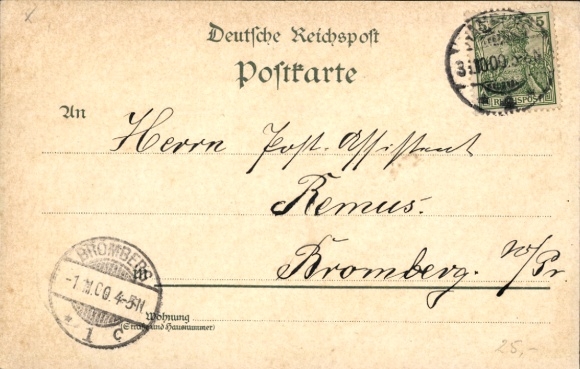 Deutsche Reichspost
Postkarte
5
31.10.00
REICHSPOST
An
Herrn Post-Assistent
Remus.
Bromberg. W/Pr.
BROMBERG
-1.11.00. 4-5N
1 c
in
Wohnung
(Straße und Hausnummer)
25,-